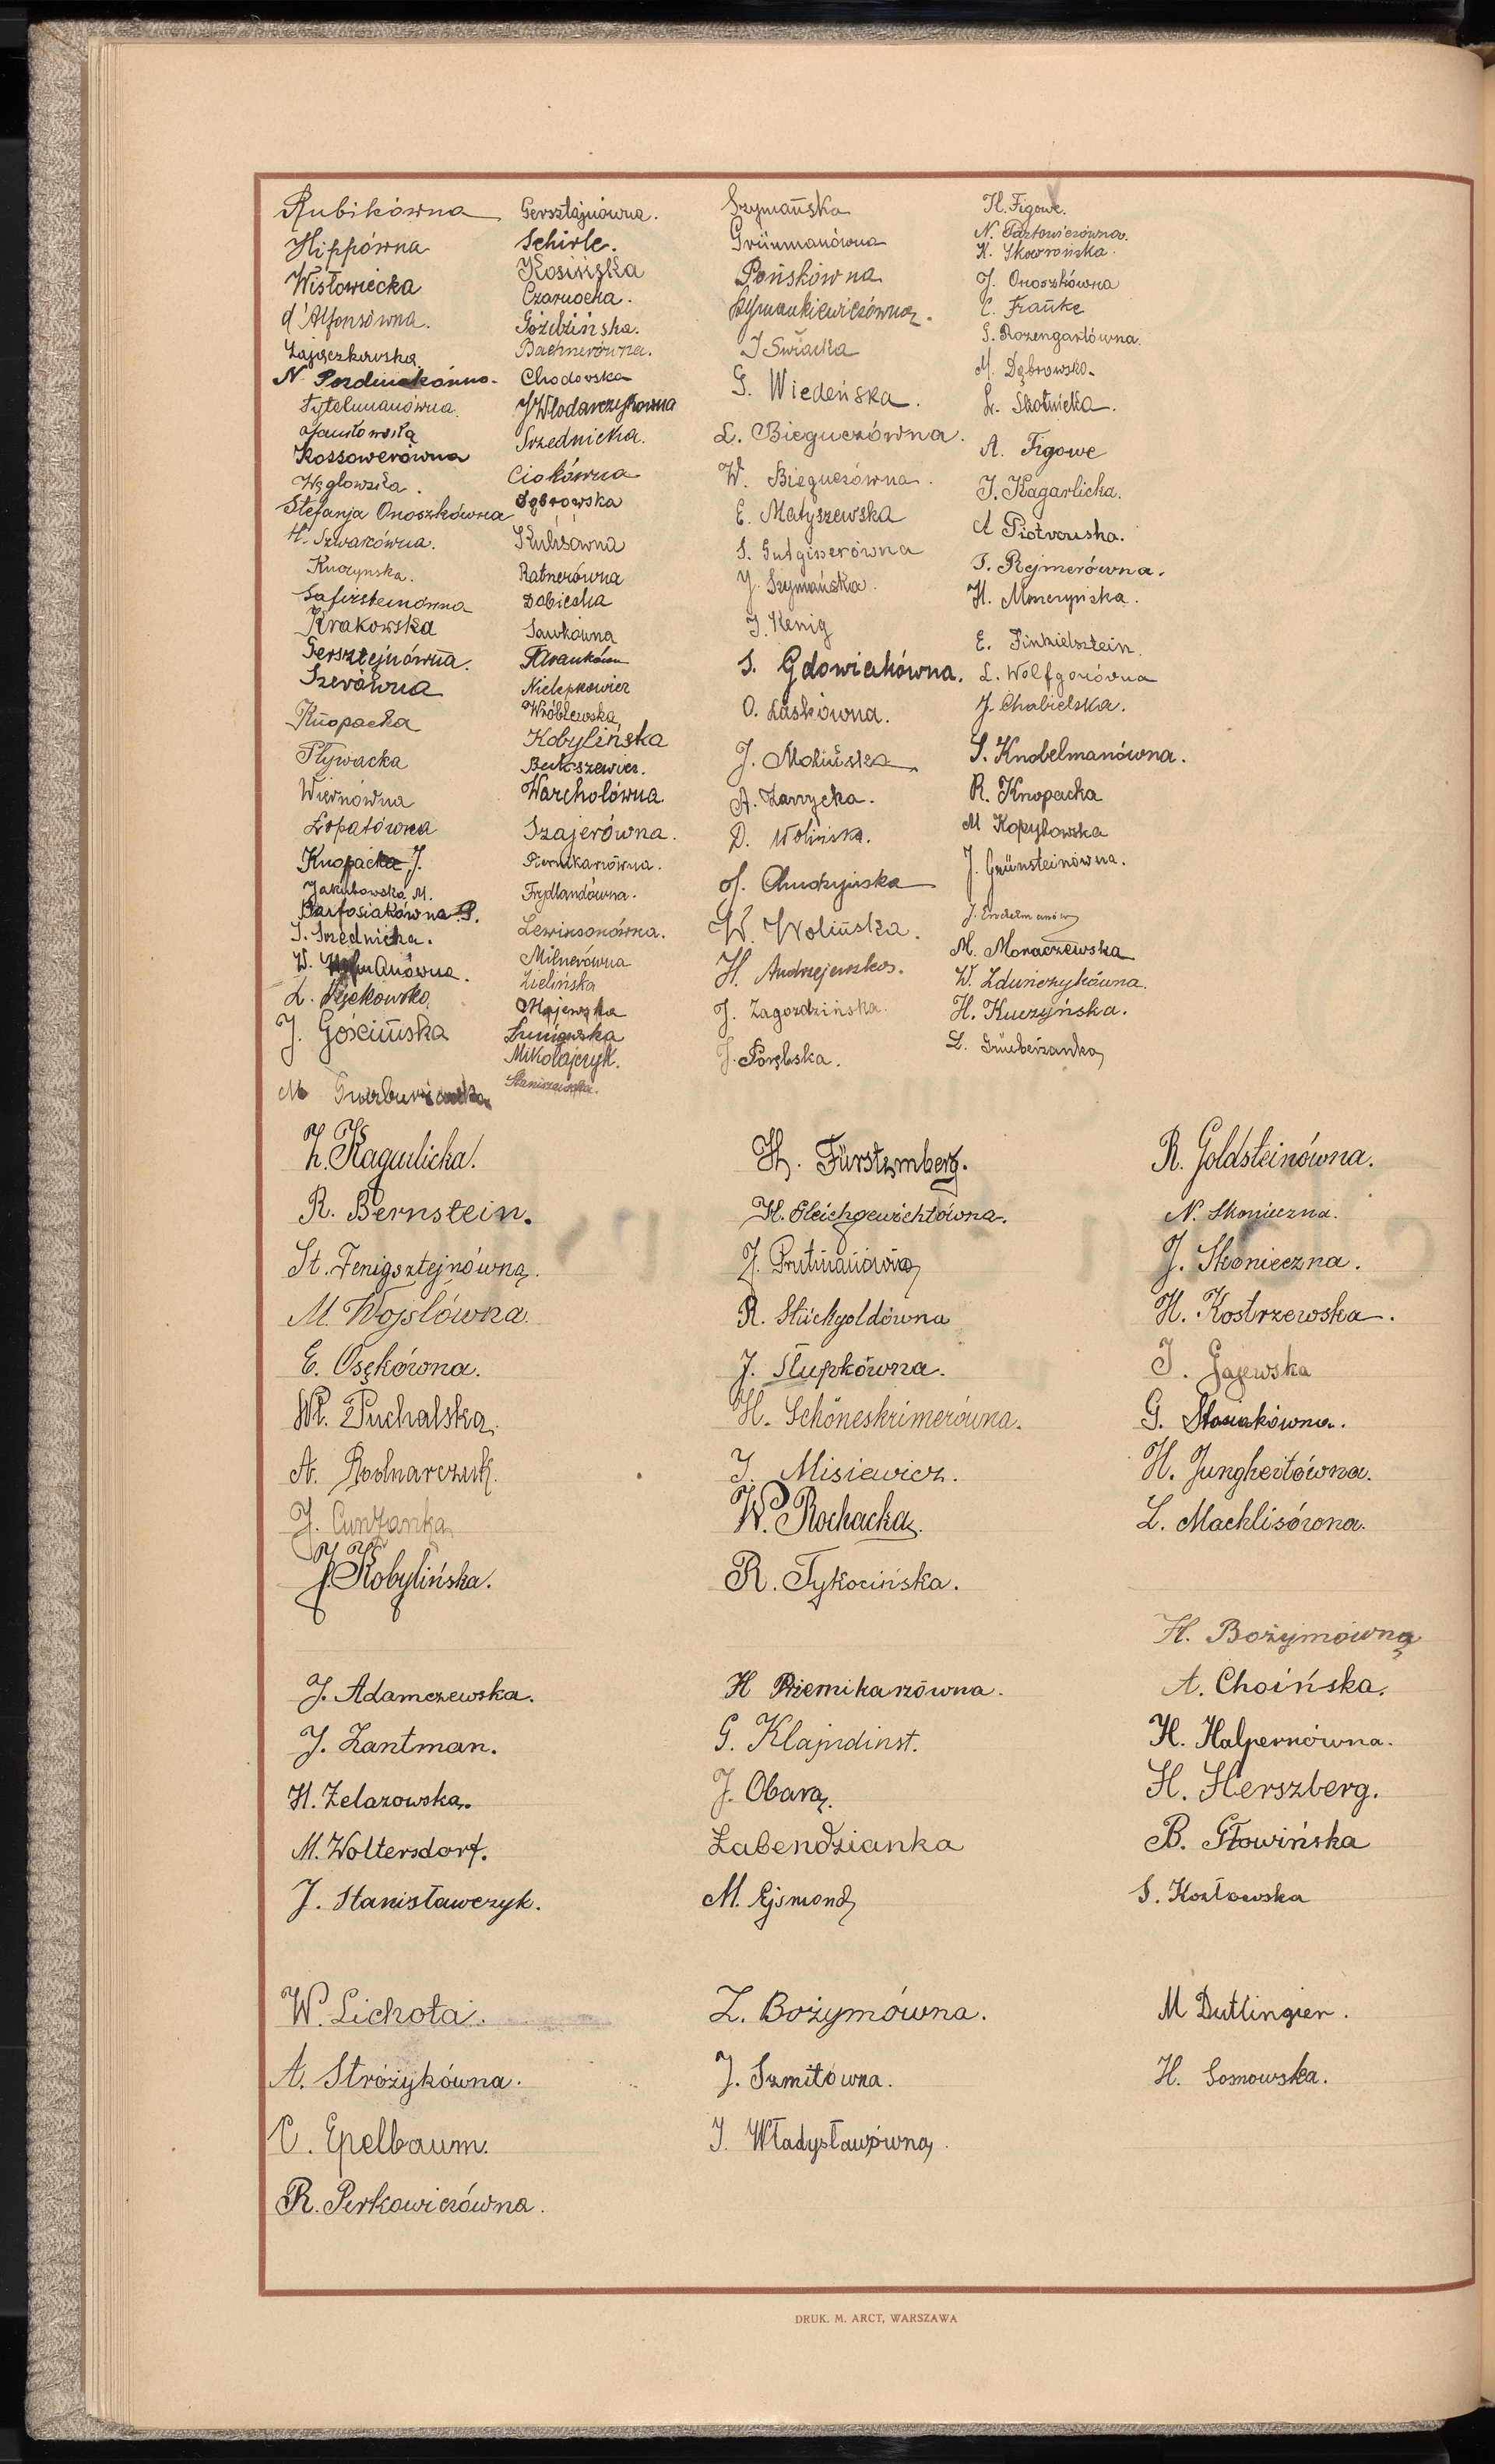 Rubikówna
Hippówna
Wisłowiecka
d'Alfonsówna.
Zajączkowska
N.
Tytelmanówna.
Kossowerówna
Węglowska.
Stefanja Onoszkówna
H. Szwakówna.
Kuczynska.
Safirsteinówna
Krakowska
Gersztejnówna.
Szerówna
Knopacka
Pływacka
Wiernówna
Łopatówna
Knopacka J.
Jakubowska M.
Bartosiakówna P.
S. Srzednicka.
W.
L.
J. Gościńska
M
Gersztajnówna.
Schirle.
Kosińska
Czarnocka.
Góździńska.
Bachnerówna.
Chodorska
J Włodarczykówna
Srzednicka.
Ciokówna
Dąbrowska
Kubisówna
Ratnerówna
Dobiecka
Sawkówna
Nielepkowicz
Wróblewska
Kobylińska
Bukszewicz.
Warchołówna.
Szajerówna.
Piernikarzówna.
Frydlandówna.
Lewinsonówna.
Milnerówna
Zielińska
Majewska
Mikołajczyk.
Staniszewska.
Szymańska
Grünmanówna
Pońskówna
Szymankiewiczówna.
J Świacka
G. Wiedeńska.
L. Bieguczówna.
W. Bieguczówna.
E. Matyszewska
S. Gutgisserówna
J. Szymańska.
J. Kenig
S. Gdowiakówna.
O. Laskówna.
J. Molińska
A. Zarzycka.
D. Wolińska.
J. Chudzyńska
W. Wolińska.
H. Andrzejewska.
J. Zagozdzińska.
J. Porębska.
H. Figowe.
N. Partowiczówna.
K. Skowrońska.
J. Onoszkówna
C. Franke
S. Rozengartówna.
M. Dąbrowska.
L. Skotnicka.
A. Figowe
J. Kagarlicka.
A Piotrowska.
T. Rejmerówna.
H. Monczyńska.
E. Finkielsztein.
L. Wolfgorówna
J. Chabielska.
S. Knobelmanówna.
R. Knopacka
M Kopylowska
J. Grünsteinówna.
M. Moraczewska
W. Zdunczykówna.
H. Kuczyńska.
Z. Kagarlicka.
R. Bernstein.
St. Fenigsztejnówna.
M. Wojslówna.
E. Osękówna.
Wł. Puchalska.
A. Bednarczuk.
J. Cunzanka
J. Kobylińska.
H. Fürstemberg.
H. Gleichgewichtówna.
J. Prutmanówna
R. Stückgoldówna
J. Słupkówna.
H. Schöneskrimerówna.
J. Misiewicz.
W. Rochacka.
R. Tykocińska.
R. Goldsteinówna.
N. Skonieczna.
J. Skonieczna.
H. Kostrzewska.
J. Gajewska
G. Stasiakówna.
H. Junghertówna.
L. Machlisówna.
H. Bożymówna
J. Adamczewska.
J. Zantman.
H. Żelazowska.
M. Woltersdorf.
J. Stanisławczyk.
H Piernikarzówna.
G. Klajndinst.
J. Obara.
Łabendzianka
M. Ejsmond
A. Choińska.
H. Halpernówna.
H. Herszberg.
B. Głowińska
S. Kozłowska
W. Lichota.
A. Stróżykówna.
C. Epelbaum.
R. Perkowiczówna.
Z. Bożymówna.
J. Szmitówna.
J. Władysławówna.
M Dutlinger.
H. Sosnowska.
DRUK. M. ARCT, WARSZAWA